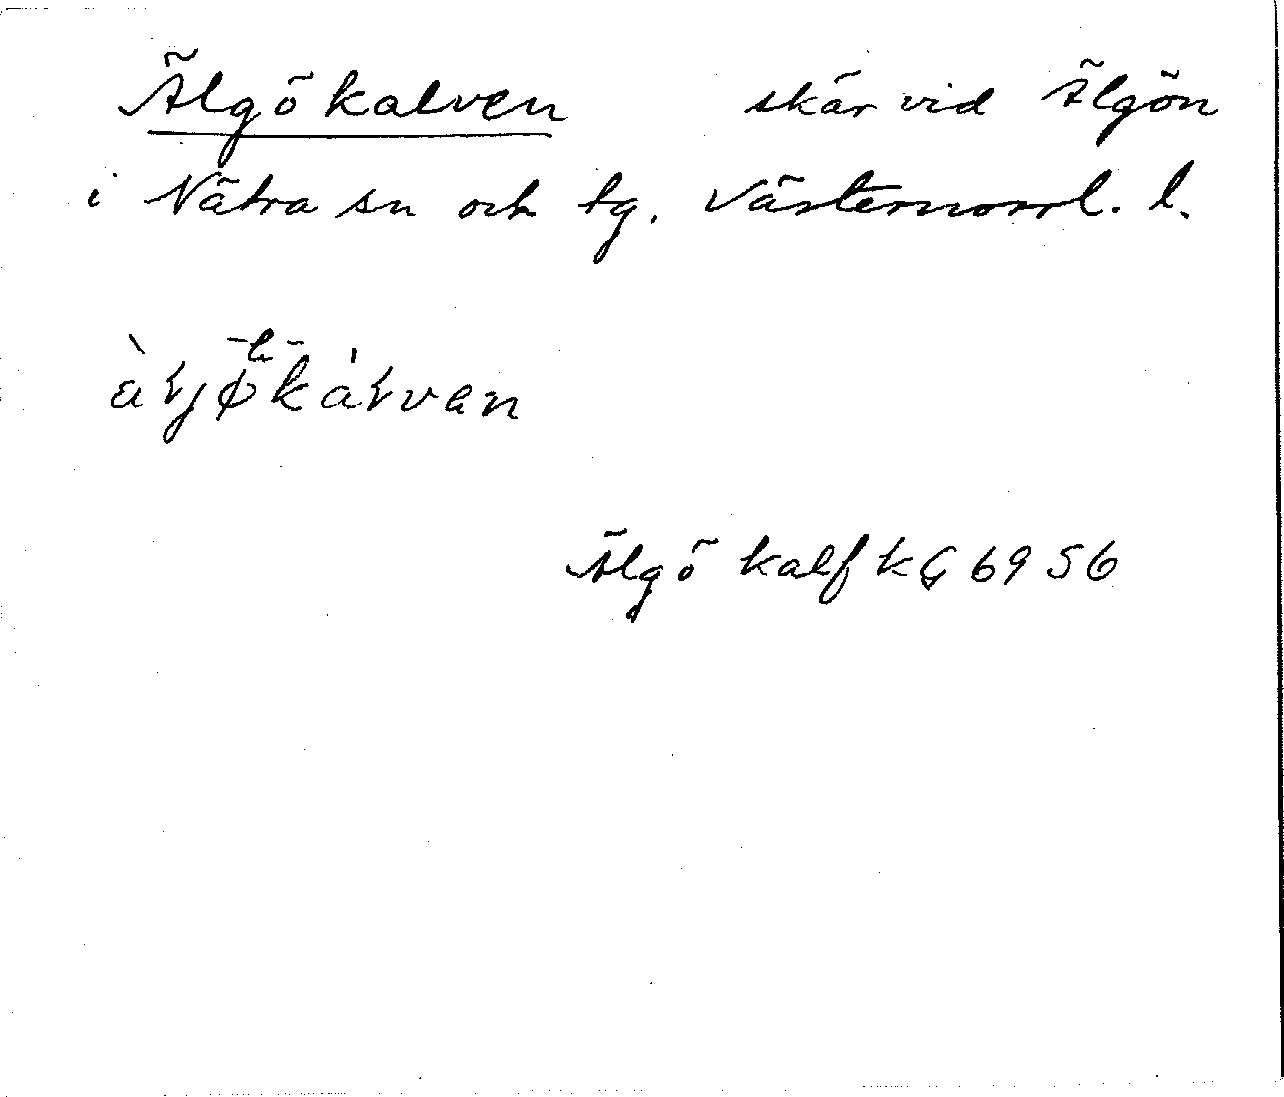 Älgökalven skär vid Älgön
i Nätra sn och tg. Västernorrl. l.
Älgö kalf kG 6956